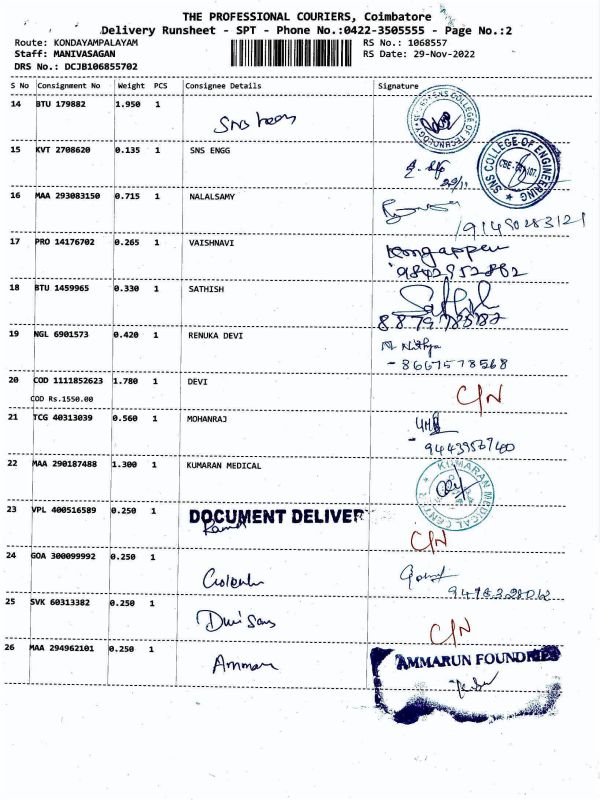 THE PROFESSIONAL COURIERS, Coimbatore
Delivery Runsheet - SPT - Phone No.:0422-3505555 - Page No.:2
Route: KONDAYAMPALAYAM RS No.: 1068557
Staff: MANIVASAGAN RS Date: 29-Nov-2022
DRS No.: DCJB106855702
S No Consignment No Weight PCS Consignee Details Signature
14 BTU 179882 1.950 1 SNS
COLLEGE OF TECHNOLOGY
15 KVT 2708620 0.135 1 SNS ENGG
SNS COLLEGE OF ENGINEERING
29/11
16 MAA 293083150 0.715 1 NALALSAMY
17 PRO 14176702 0.265 1 VAISHNAVI
9842952882
18 BTU 1459965 0.330 1 SATHISH Sathish
19 NGL 6901573 0.420 1 RENUKA DEVI Nithya
- 8667578568
20 COD 1111852623 1.780 1 DEVI C/N
COD Rs.1550.00
21 TCG 40313039 0.560 1 MOHANRAJ
22 MAA 290187488 1.300 1 KUMARAN MEDICAL
KUMARAN MEDICAL CENTRE
23 VPL 400516589 0.250 1 DOCUMENT DELIVER
C/N
24 GOA 300099992 0.250 1
25 SVK 60313382 0.250 1 C/N
26 MAA 294962101 0.250 1 AMMARUN FOUNDRIES